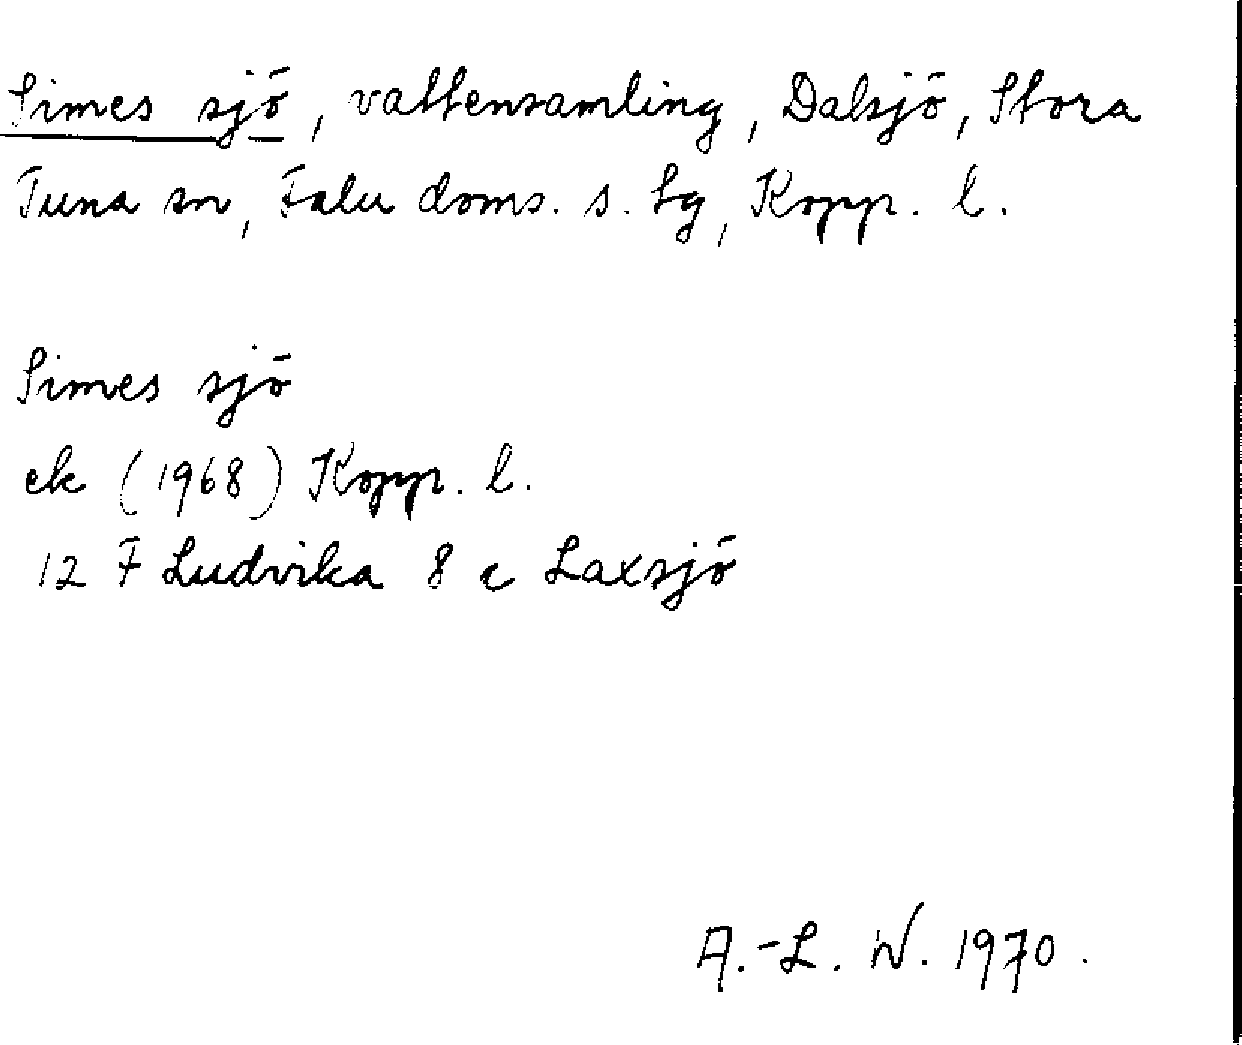 Simes sjö, vattensamling, Dalsjö, Stora
Tuna sn, Falu doms. s. tg, Kopp. l.
Simes sjö
ek (1968) Kopp. l.
12 F Ludvika 8 c Laxsjö
A.-L. W. 1970.